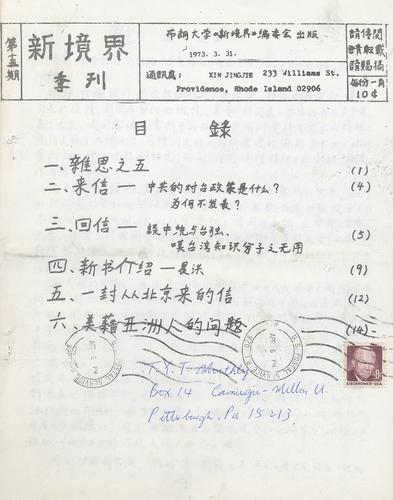 第十五期
新境界
季刊
布朗大学《新境界》编委会 出版
1973. 3. 31.
通訊處： XIN JINGJIE 233 Williams St.
Providence, Rhode Island 02906
請傳閱
請轉載
請賜稿
每份一角
10¢
目 錄
一、雜思之五 (1)
二、来信 — 中共的对台政策是什么？ (4)
为何不发表？
三、回信 — 談中统与台独、 (5)
嘆台湾知识分子之无用
四、新书介绍 — 晨洪 (9)
五、一封从北京来的信 (12)
六、美籍亚洲人的问题 (14)
U.S. POSTAL SERVICE
U.S. POSTAL SERVICE
EISENHOWER·USA
T.K.T. Monthly
Box 14 Carnegie-Mellon U.
Pittsburgh, Pa 15213